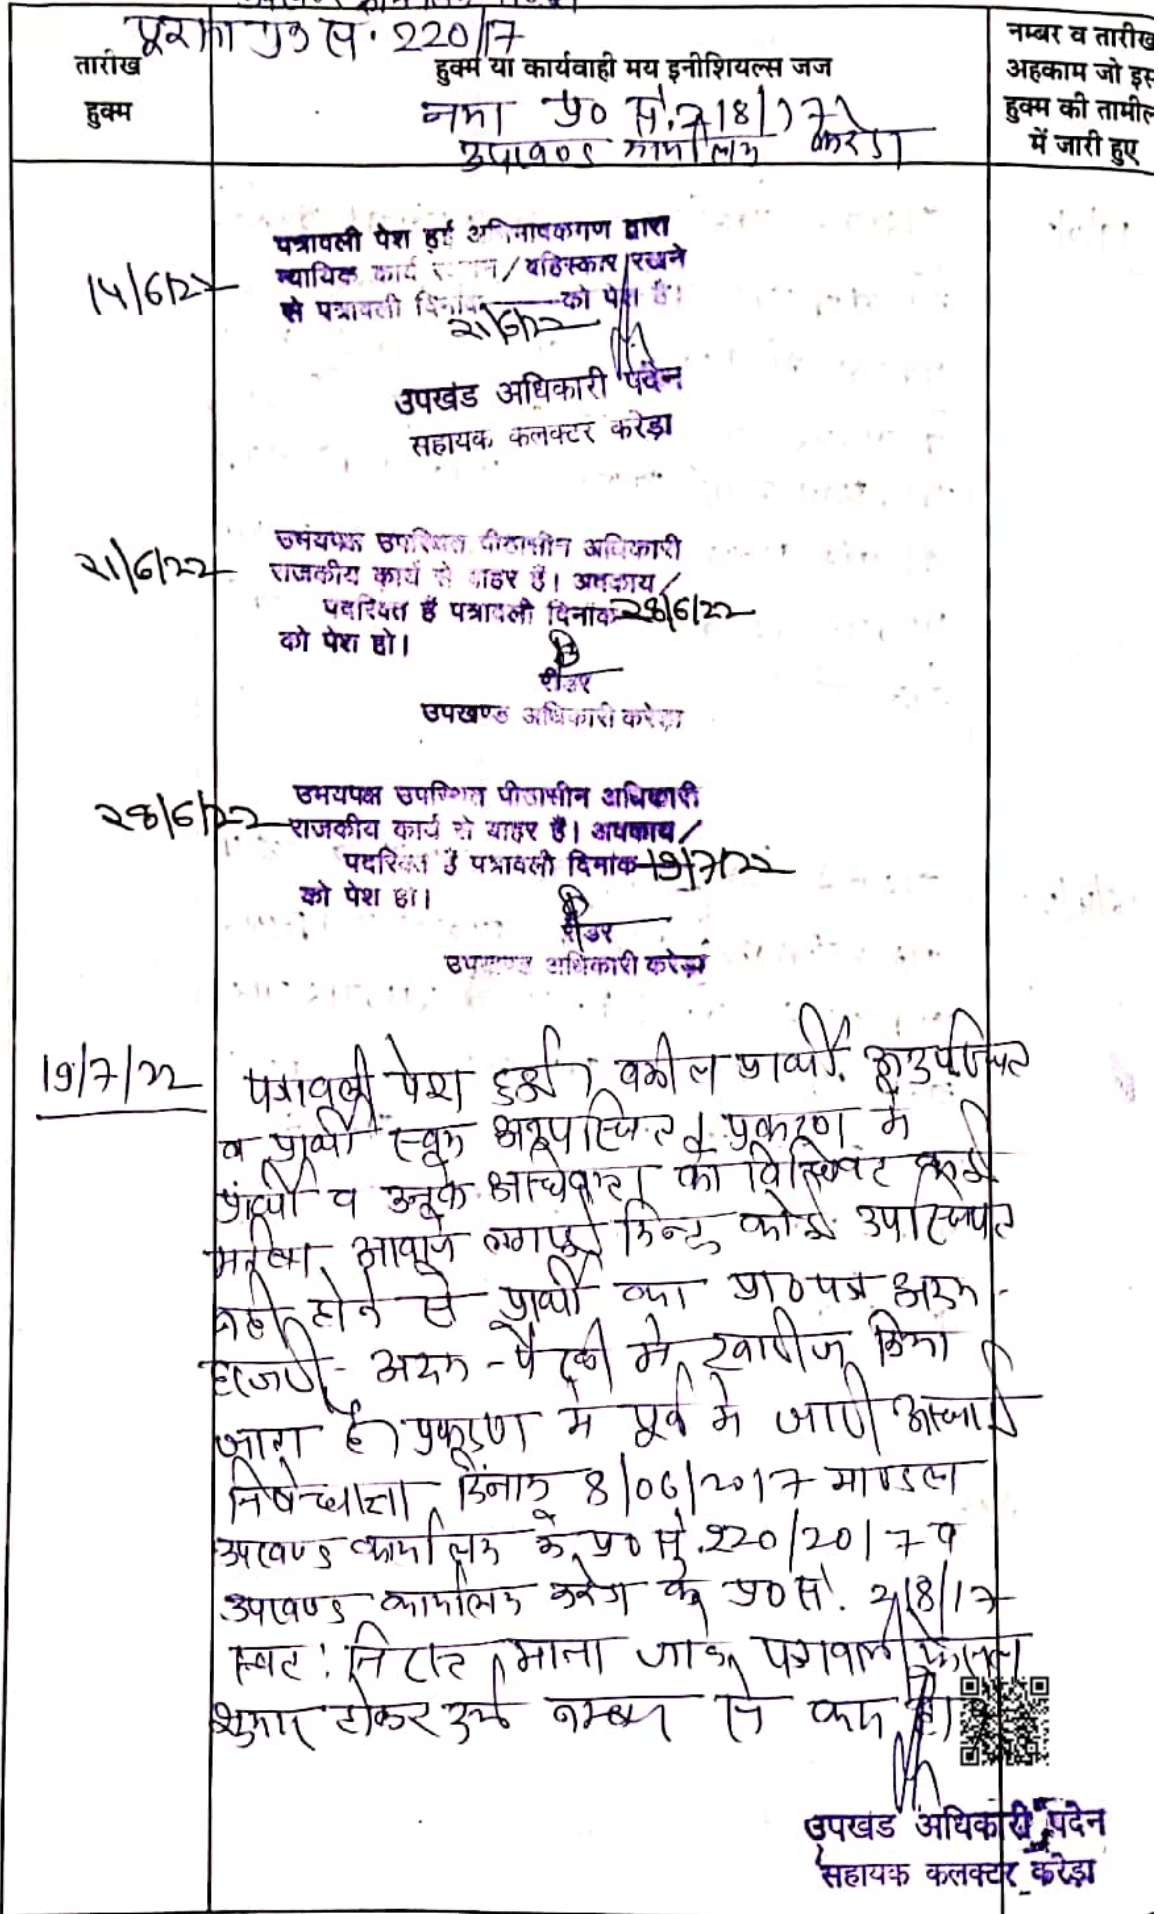 पुराना मु0 स. 220/17
तारीख
हुक्म
हुक्म या कार्यवाही मय इनीशियल्स जज
नया प्र0 सं. 218/17
उपखण्ड कार्यालय करेडा
नम्बर व तारीख
अहकाम जो इस
हुक्म की तामील
में जारी हुए
14/6/22
पत्रावली पेश हुई अभिभाषकगण द्वारा
न्यायिक कार्य स्थगन/बहिस्कार रखने
से पत्रावली दिनांक 21/6/22 को पेश है।
उपखंड अधिकारी पदेन
सहायक कलक्टर करेड़ा
21/6/22
उभयपक्ष उपस्थित पीठासीन अधिकारी
राजकीय कार्य से बाहर है। अवकाश/
पदरिक्त है पत्रावली दिनांक 28/6/22
को पेश हो।
रीडर
उपखण्ड अधिकारी करेड़ा
28/6/22
उभयपक्ष उपस्थित पीठासीन अधिकारी
राजकीय कार्य से बाहर है। अवकाश/
पदरिक्त है पत्रावली दिनांक 19/7/22
को पेश हो।
रीडर
उपखण्ड अधिकारी करेड़ा
19/7/22
पत्रावली पेश हुई। वकील प्रार्थी अनुपस्थित
व प्रार्थी स्वयं अनुपस्थित। प्रकरण में
प्रार्थी व उनके अधिवक्ता को
आवाजें लगाई किन्तु कोई उपस्थित
नही होने से प्रार्थी का प्रा0पत्र अदम-
हाजरी-अदम-पैरवी में खारीज किया
जाता है। प्रकरण में पूर्व में जारी अस्थाई
निषेधाज्ञा दिनांक 8/06/2017 माण्डल
उपखण्ड कार्यालय के प्र0 सं. 220/2017 व
उपखण्ड कार्यालय करेडा के प्र0 सं. 218/17
स्वत: निरस्त माना जावे। पत्रावली फैसल
शुमार होकर नम्बर से कम हो।
उपखंड अधिकारी पदेन
सहायक कलक्टर करेड़ा